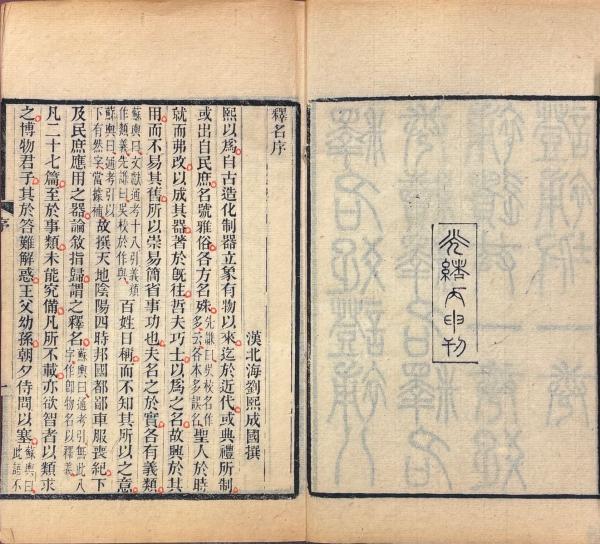 光緒丙申刊
釋名序
漢北海劉熙成國撰
熙以爲自古造化制器立象有物以來迄於近代或典禮所制
或出自民庶名號雅俗各方名殊先謙曰吳校名作多云各本多誤名聖人於時
就而弗改以成其器著於旣往哲夫巧士以爲之名故興於其
用而不易其舊所以崇易簡省事功也夫名之於實各有義類
蘇輿曰文獻通考十八引義類作類義先謙曰吳校於作與百姓日稱而不知其所以之意
蘇輿曰通考引以下有然字當據補故撰天地陰陽四時邦國都鄙車服喪紀下
及民庶應用之器論敘指歸謂之釋名蘇輿曰通考引無此八字作卽物名以釋義
凡二十七篇至於事類未能究備凡所不載亦欲智者以類求
之博物君子其於答難解惑王父幼孫朝夕侍問以塞蘇輿曰此語不
序
一